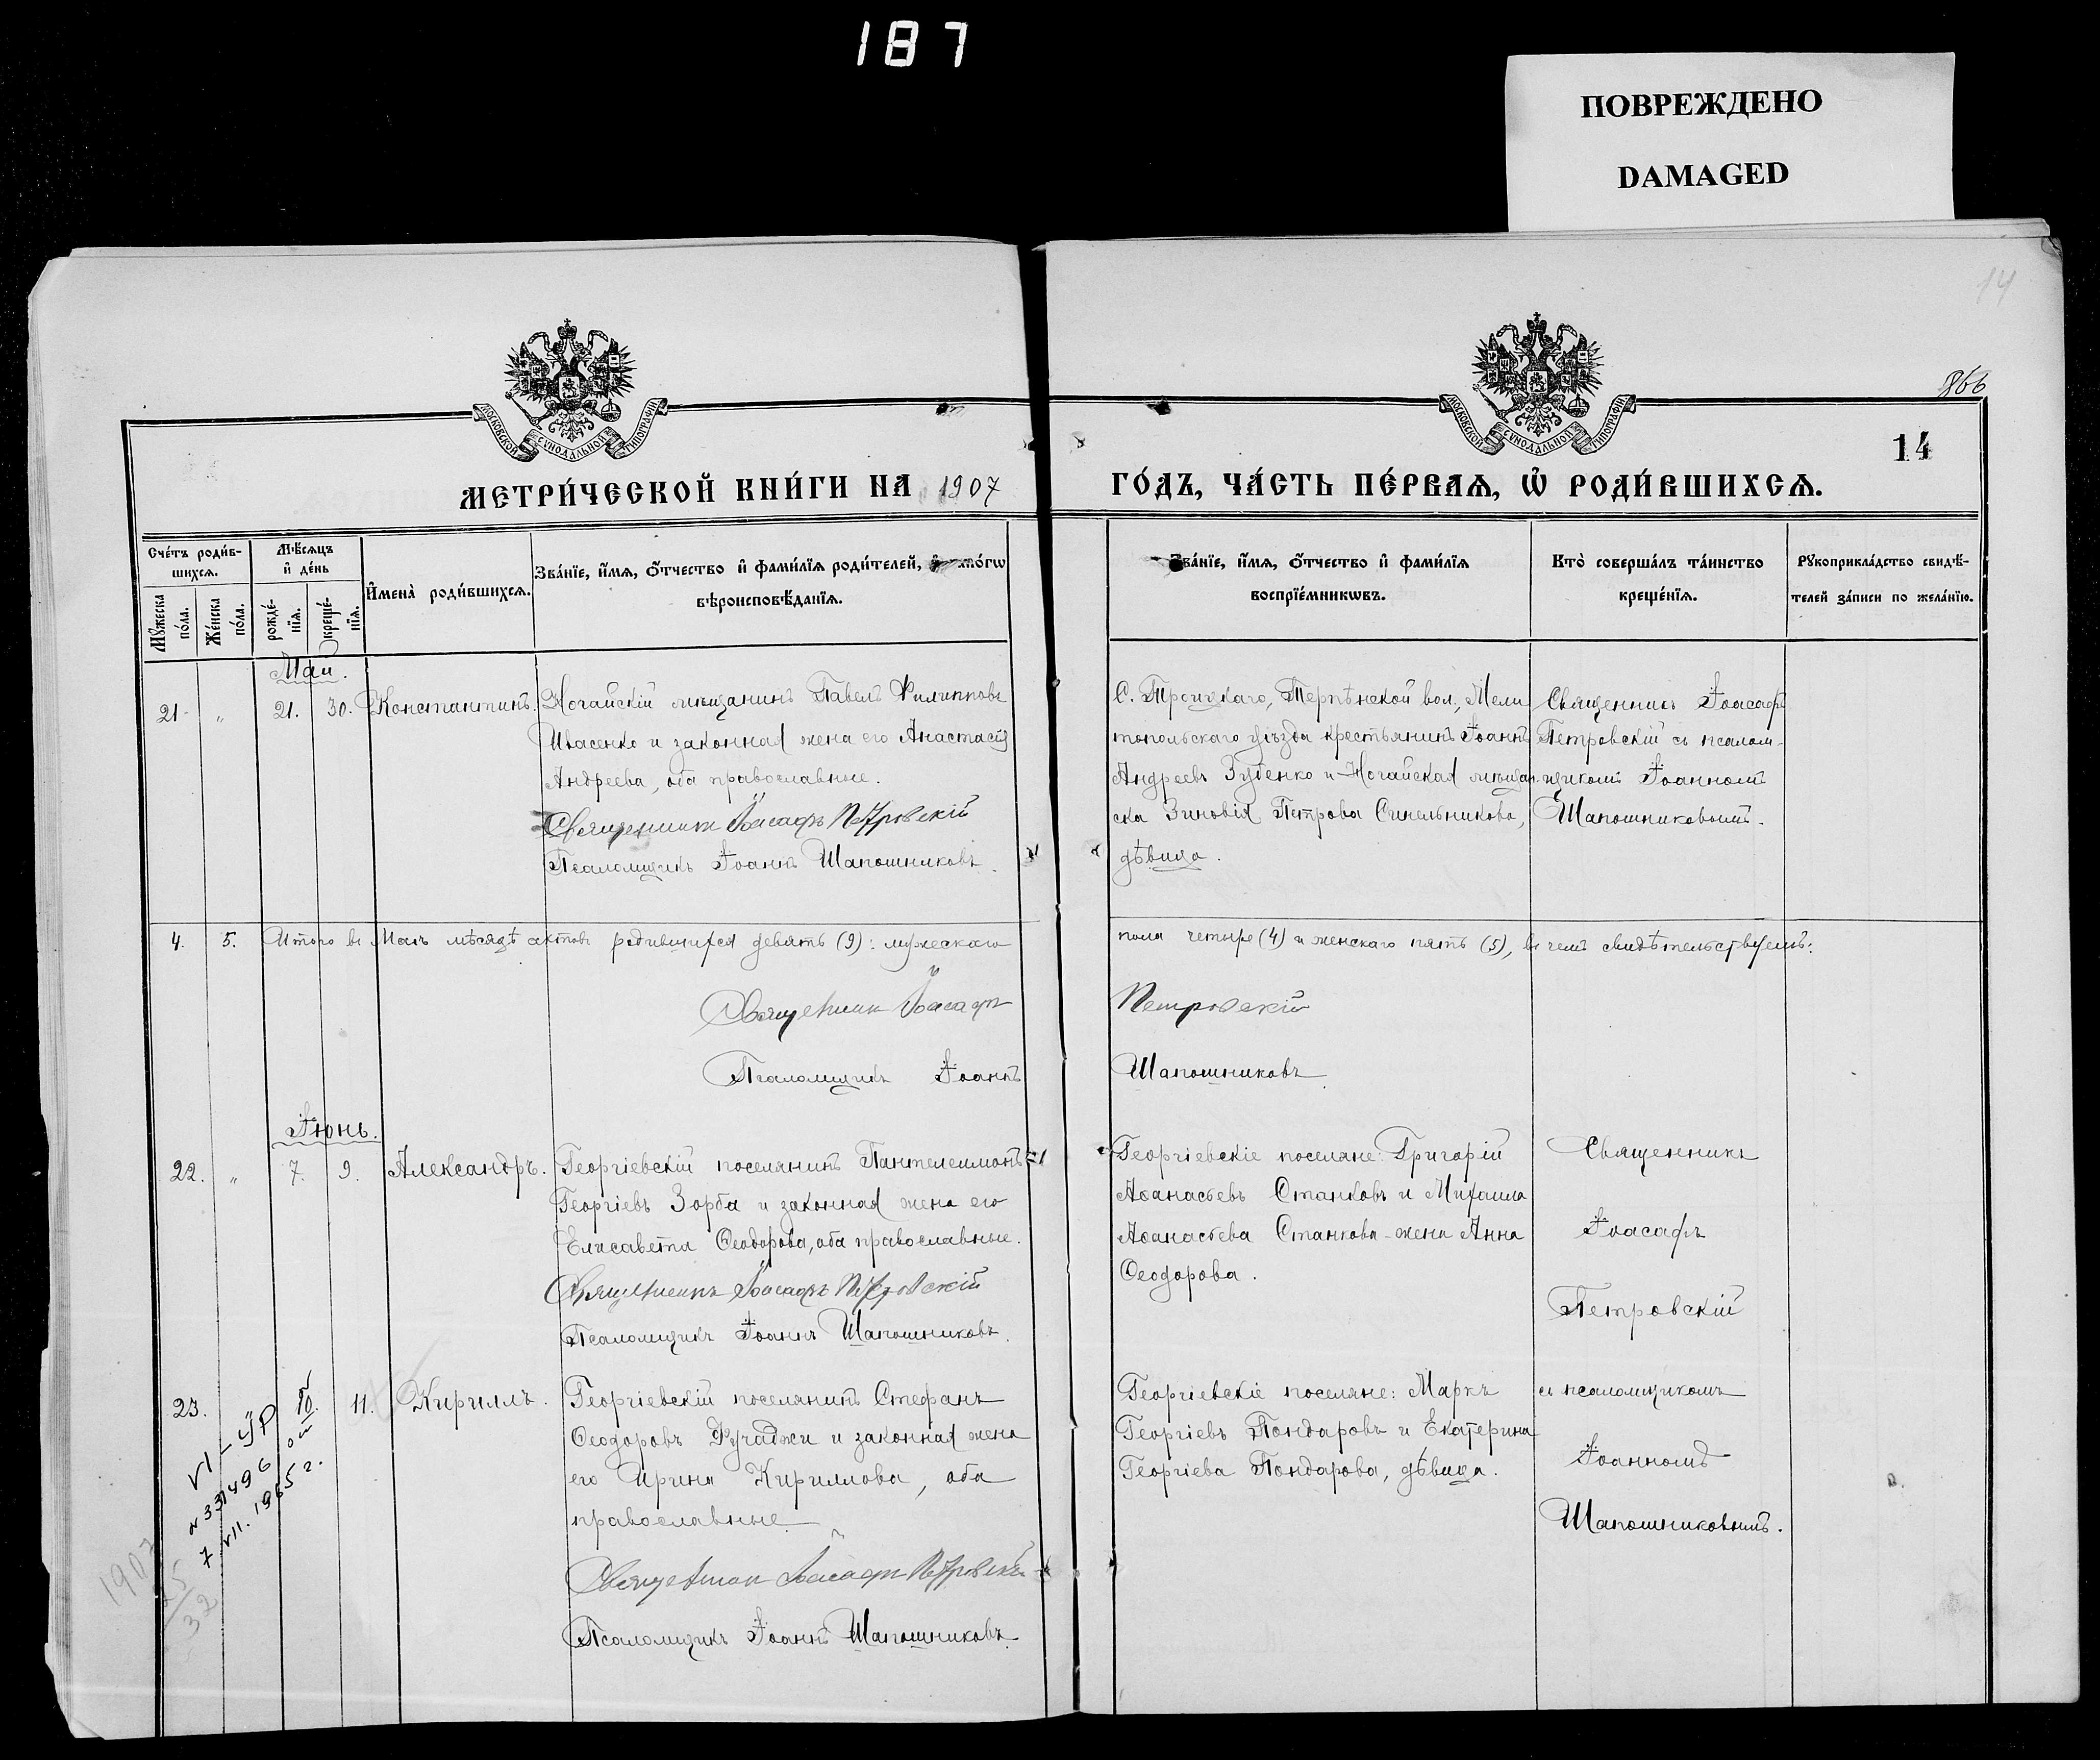 187
ПОВРЕЖДЕНО
DAMAGED
14
866
МОСКОВСКОЙ СѴНОДАЛЬНОЙ ТИПОГРАФІИ
МОСКОВСКОЙ СѴНОДАЛЬНОЙ ТИПОГРАФІИ
14
МЕТРИ́ЧЕСКОЙ КНИ́ГИ НА 1907 ГО́ДЪ, ЧА́СТЬ ПЕ́РВАѦ, Ѡ҆ РОДИ́ВШИХСѦ.
Сче́тъ роди́в-
шихсѧ.
Мꙋ́жеска
по́ла.
Же́нска
по́ла.
Мѣ́сѧцъ
и҆ де́нь
рожде́-
нїѧ.
креще́-
нїѧ.
И҆мена̀ роди́вшихсѧ.
Зва́нїе, и҆́мѧ, о҆́тчество и҆ фами́лїѧ роди́телей, и҆ ко́гѡ
вѣроисповѣ́данїѧ.
Зва́нїе, и҆́мѧ, о҆́тчество и҆ фами́лїѧ
воспрїе́мникѡвъ.
Кто̀ соверша́лъ та́инство
креще́нїѧ.
Рꙋкоприкла́дство свидѣ́-
телей за́писи по жела́нїю.
Май.
21 " 21. 30. Константинъ.
Ногайскій мѣщанинъ Павелъ Филипповъ
Ивасенко и законная жена его Анастасія
Андреева, оба православные.
Священникъ Іоасафъ Петровскій
Псаломщикъ Іоаннъ Шапошниковъ.
С. Троицкаго, Терпѣнской вол., Мели
топольскаго уѣзда крестьянинъ Іоаннъ
Андреевъ Зубенко и Ногайская мѣщан
ска Зиновія Петрова Синельникова,
дѣвица.
Священникъ Іоасафъ
Петровскій съ псалом-
щикомъ Іоанномъ
Шапошниковымъ.
4. 5. Итого въ Маѣ мѣсяцѣ актовъ родившихся девять (9): мужескаго пола четыре (4) и женскаго пять (5), въ чемъ свидѣтельствуемъ:
Священникъ Іоасафъ Петровскій
Псаломщикъ Іоаннъ Шапошниковъ
Іюнь.
22. " 7. 9. Александръ.
Георгіевскій поселянинъ Пантелеимонъ
Георгіевъ Зорба и законная жена его
Елисавета Ѳеодорова, оба православные.
Священникъ Іоасафъ Петровскій
Псаломщикъ Іоаннъ Шапошниковъ.
Георгіевскіе поселяне: Григорій
Аѳанасьевъ Станковъ и Михаила
Аѳанасьева Станкова - жена Анна
Ѳеодорова.
Священникъ
Іоасафъ
Петровскій
23. " 10. 11. Кириллъ.
Георгіевскій поселянинъ Стефанъ
Ѳеодоровъ Фучаджи и законная жена
его Ирина Кириллова, оба
православные.
Священникъ Іоасафъ Петровскій
Псаломщикъ Іоаннъ Шапошниковъ.
Георгіевскіе поселяне: Маркъ
Георгіевъ Пондаровъ и Екатерина
Георгіева Пондарова, дѣвица.
съ псаломщикомъ
Іоанномъ
Шапошниковымъ.
VI-УР
№ 331496 от
7 VII. 1965 г.
1907